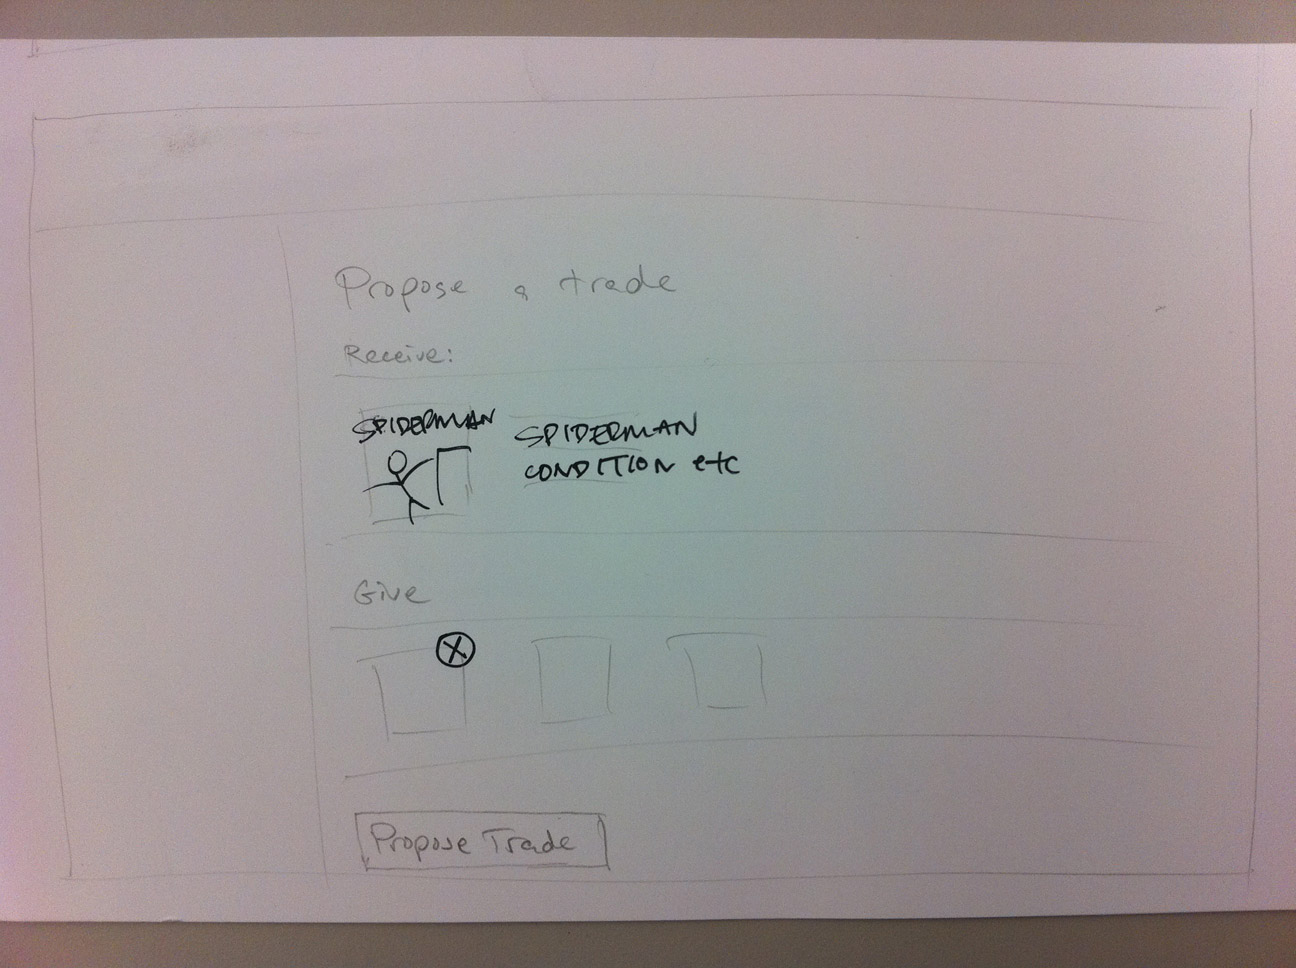 Propose a trade
Receive:
SPIDERMAN
SPIDERMAN
CONDITION etc
Give
X
Propose Trade